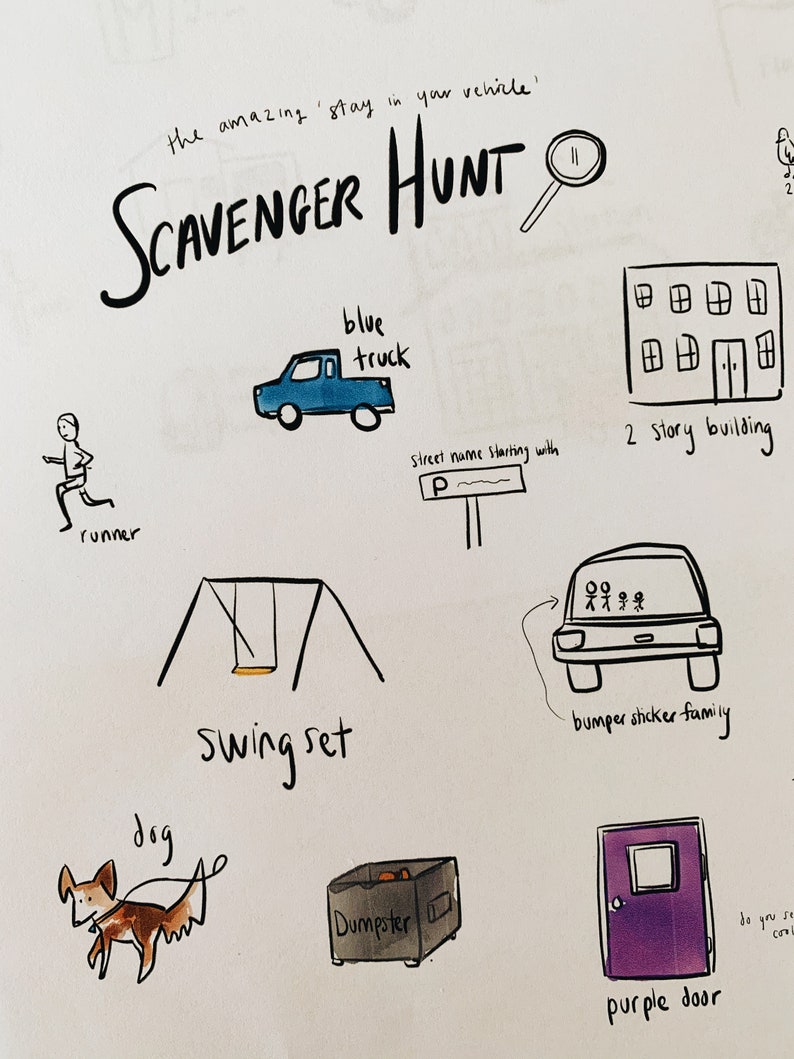 the amazing 'stay in your vehicle'
SCAVENGER HUNT
blue
truck
2 story building
runner
street name starting with
P
swing set
bumper sticker family
dog
Dumpster
purple door
do you se
cool
2